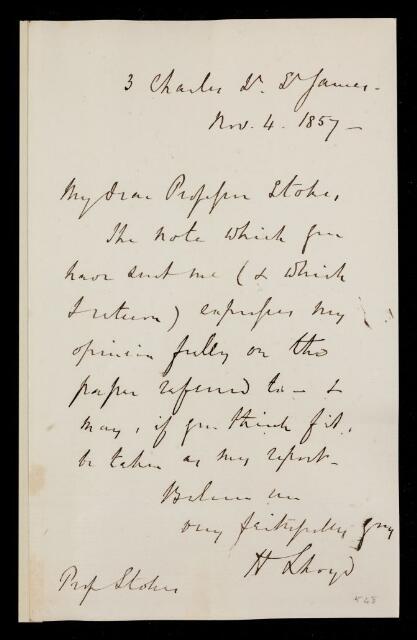 3 Charles St. St James.
Nov. 4. 1857 —
My dear Professor Stokes,
The note which you
have sent me (& which
I return) expresses my
opinion fully on the
paper referred to — &
may, if you think fit,
be taken as my report.
Believe me
very faithfully yours
H Lloyd
Prof Stokes